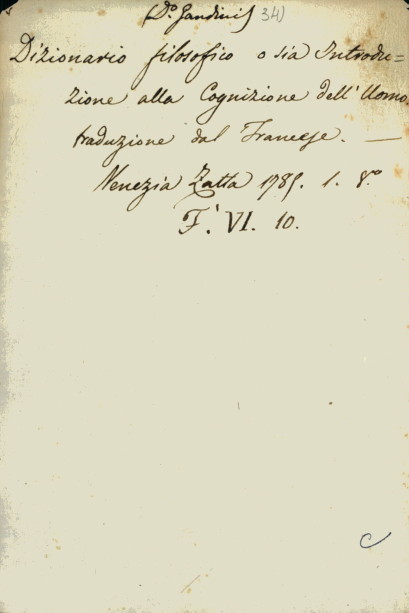 (D.º Gandini) 34)
Dizionario filosofico o sia Introdu=
zione alla Cognizione dell'Uomo
traduzione dal Francese. —
Venezia Zatta 1785. 1. 8.º
F. VI. 10.
C